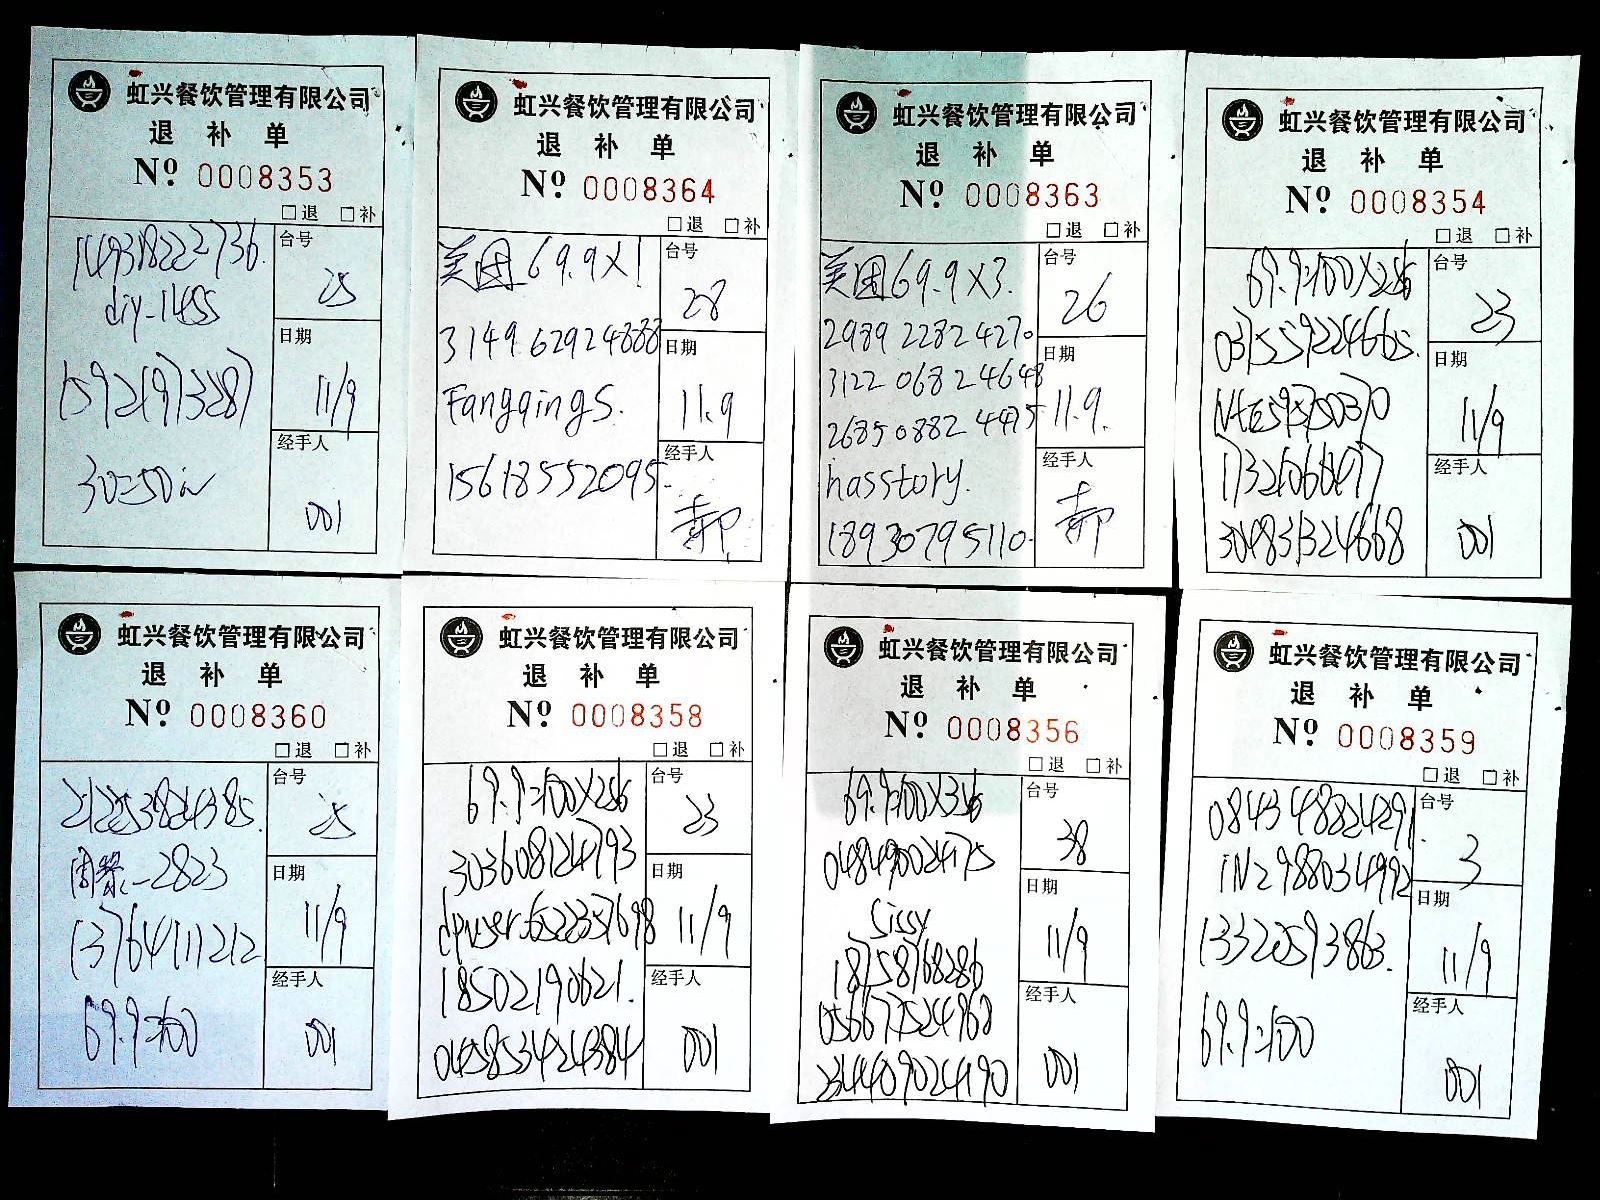 虹兴餐饮管理有限公司
退 补 单
Nº 0008353
□退 □补
台号
25
日期
11/9
经手人
001
虹兴餐饮管理有限公司
退 补 单
Nº 0008364
□退 □补
美团 69.9X1
3149 62924888
Fangqings.
15618552095
台号
28
日期
11.9
经手人
郝
虹兴餐饮管理有限公司
退 补 单
Nº 0008363
□退 □补
美团69.9X3.
2989 2282 4270
3122 0682 4648
2685 0882 4475
hasstory.
18930795110
台号
26
日期
11.9.
经手人
郝
虹兴餐饮管理有限公司
退 补 单
Nº 0008354
□退 □补
台号
23
日期
11/9
经手人
001
虹兴餐饮管理有限公司
退 补 单
Nº 0008360
□退 □补
13764111212
69.9=100
台号
25
日期
11/9
经手人
001
虹兴餐饮管理有限公司
退 补 单
Nº 0008358
□退 □补
303608124793
18502190621.
045853424384
台号
23
日期
11/9
经手人
001
虹兴餐饮管理有限公司
退 补 单
Nº 0008356
□退 □补
048490024175
Sissy
18758768286
056677524960
234409024190
台号
38
日期
11/9
经手人
001
虹兴餐饮管理有限公司
退 补 单
Nº 0008359
□退 □补
084348824291
13320593863.
69.9=100
台号
3
日期
11/9
经手人
001